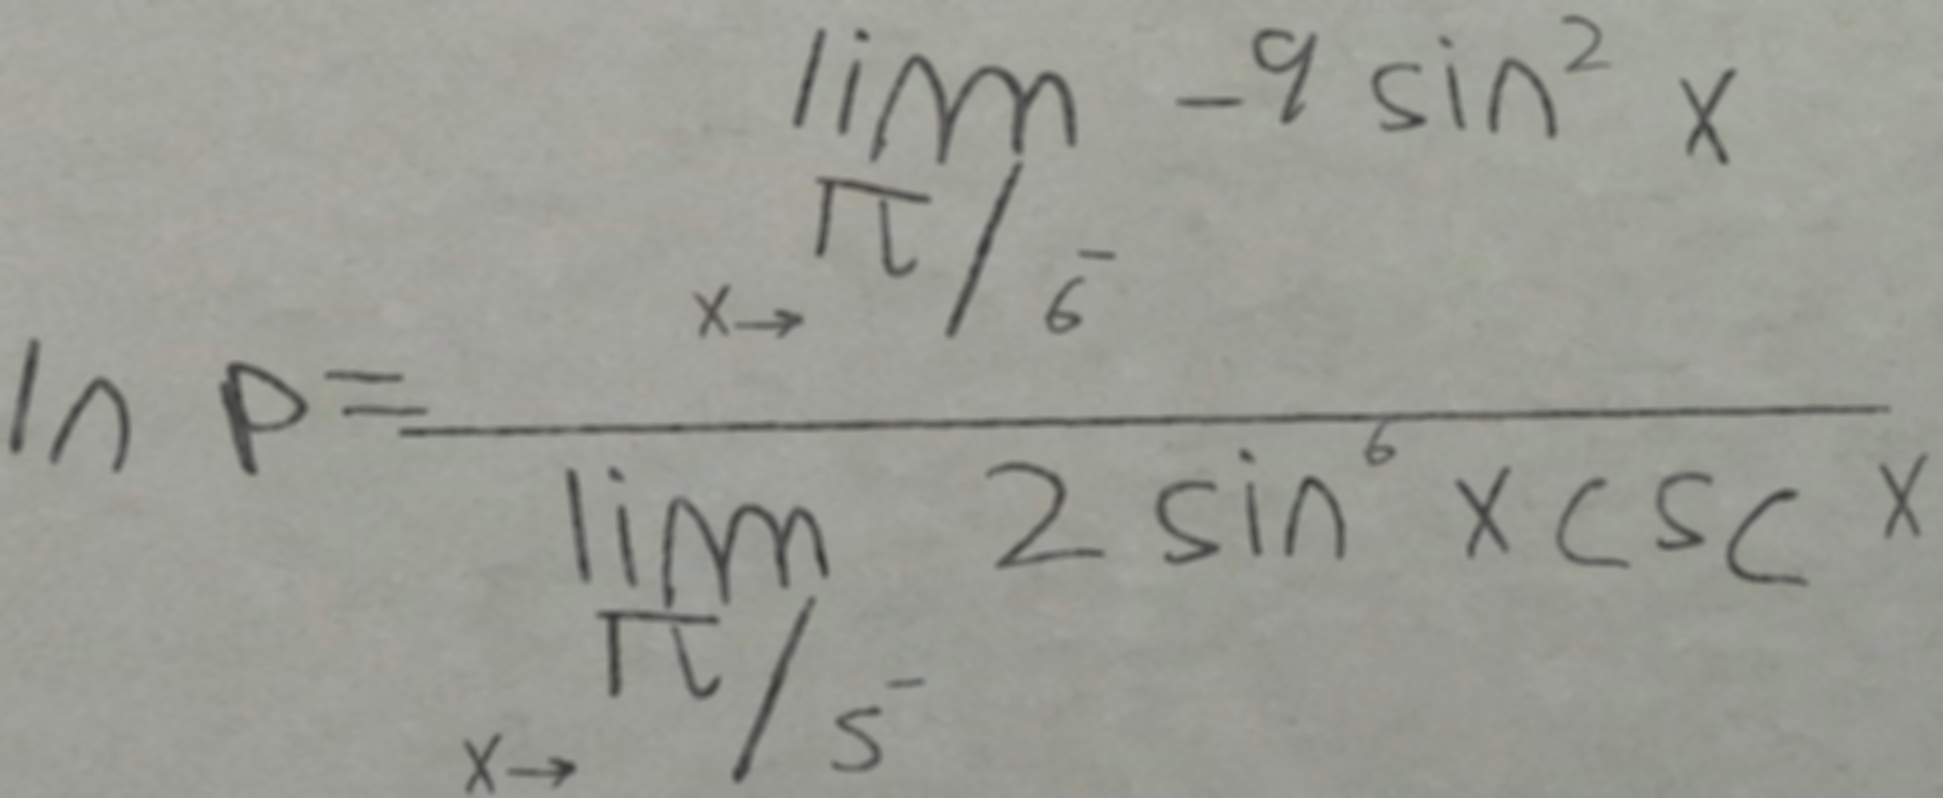 ln p = \frac{\lim_{x \to \pi/6^-} -9 \sin^2 x}{\lim_{x \to \pi/5^-} 2 \sin^6 x \csc x}